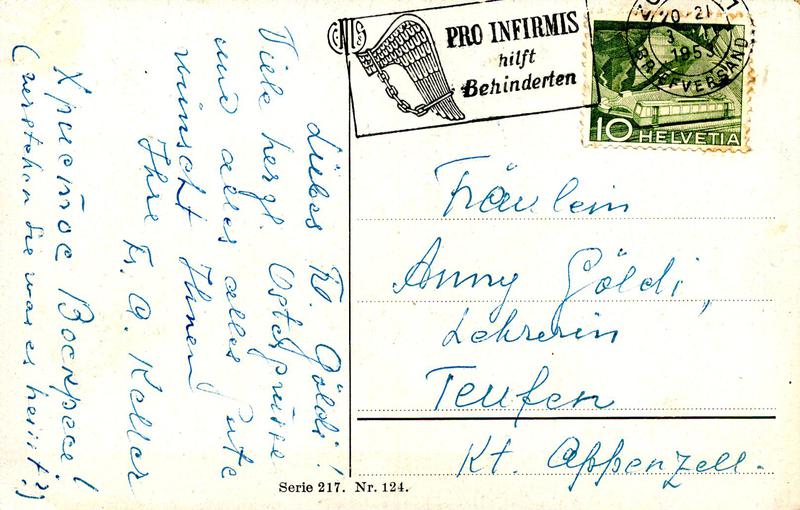 Liebes Frl. Göldi!
Viele herzl. Ostergrüsse
und alles alles Gute
wünscht Ihnen
Ihre Fr. A. Keller
Христос Воскресе!
(verstehen Sie was es heisst?)
PRO INFIRMIS
hilft
Behinderten
BRIEFVERSAND
10 HELVETIA
Fräulein
Anny Göldi,
Lehrerin
Teufen
Kt. Appenzell.
Serie 217. Nr. 124.